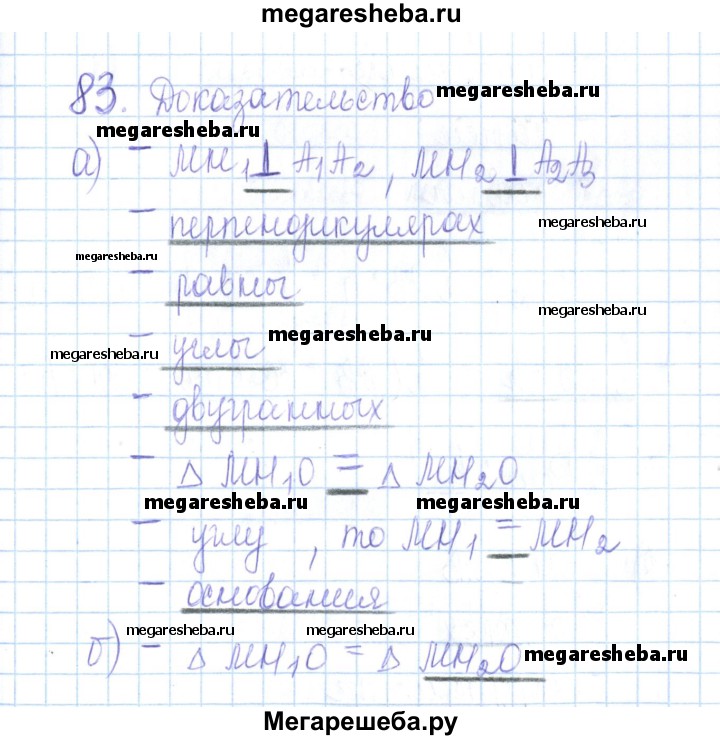 megaresheba.ru
83. Доказательство megaresheba.ru
megaresheba.ru
а) - МН₁ ⊥ А₁А₂, МН₂ ⊥ А₂А₃
- перпендикулярах megaresheba.ru
megaresheba.ru
- равны
megaresheba.ru
megaresheba.ru
megaresheba.ru
- углы
- двугранных
- △ МН₁О = △ МН₂О
megaresheba.ru megaresheba.ru
- углу, то МН₁ = МН₂
- основания
megaresheba.ru megaresheba.ru
б) - △ МН₁О = △ МН₂О megaresheba.ru
Мегарешеба.ру